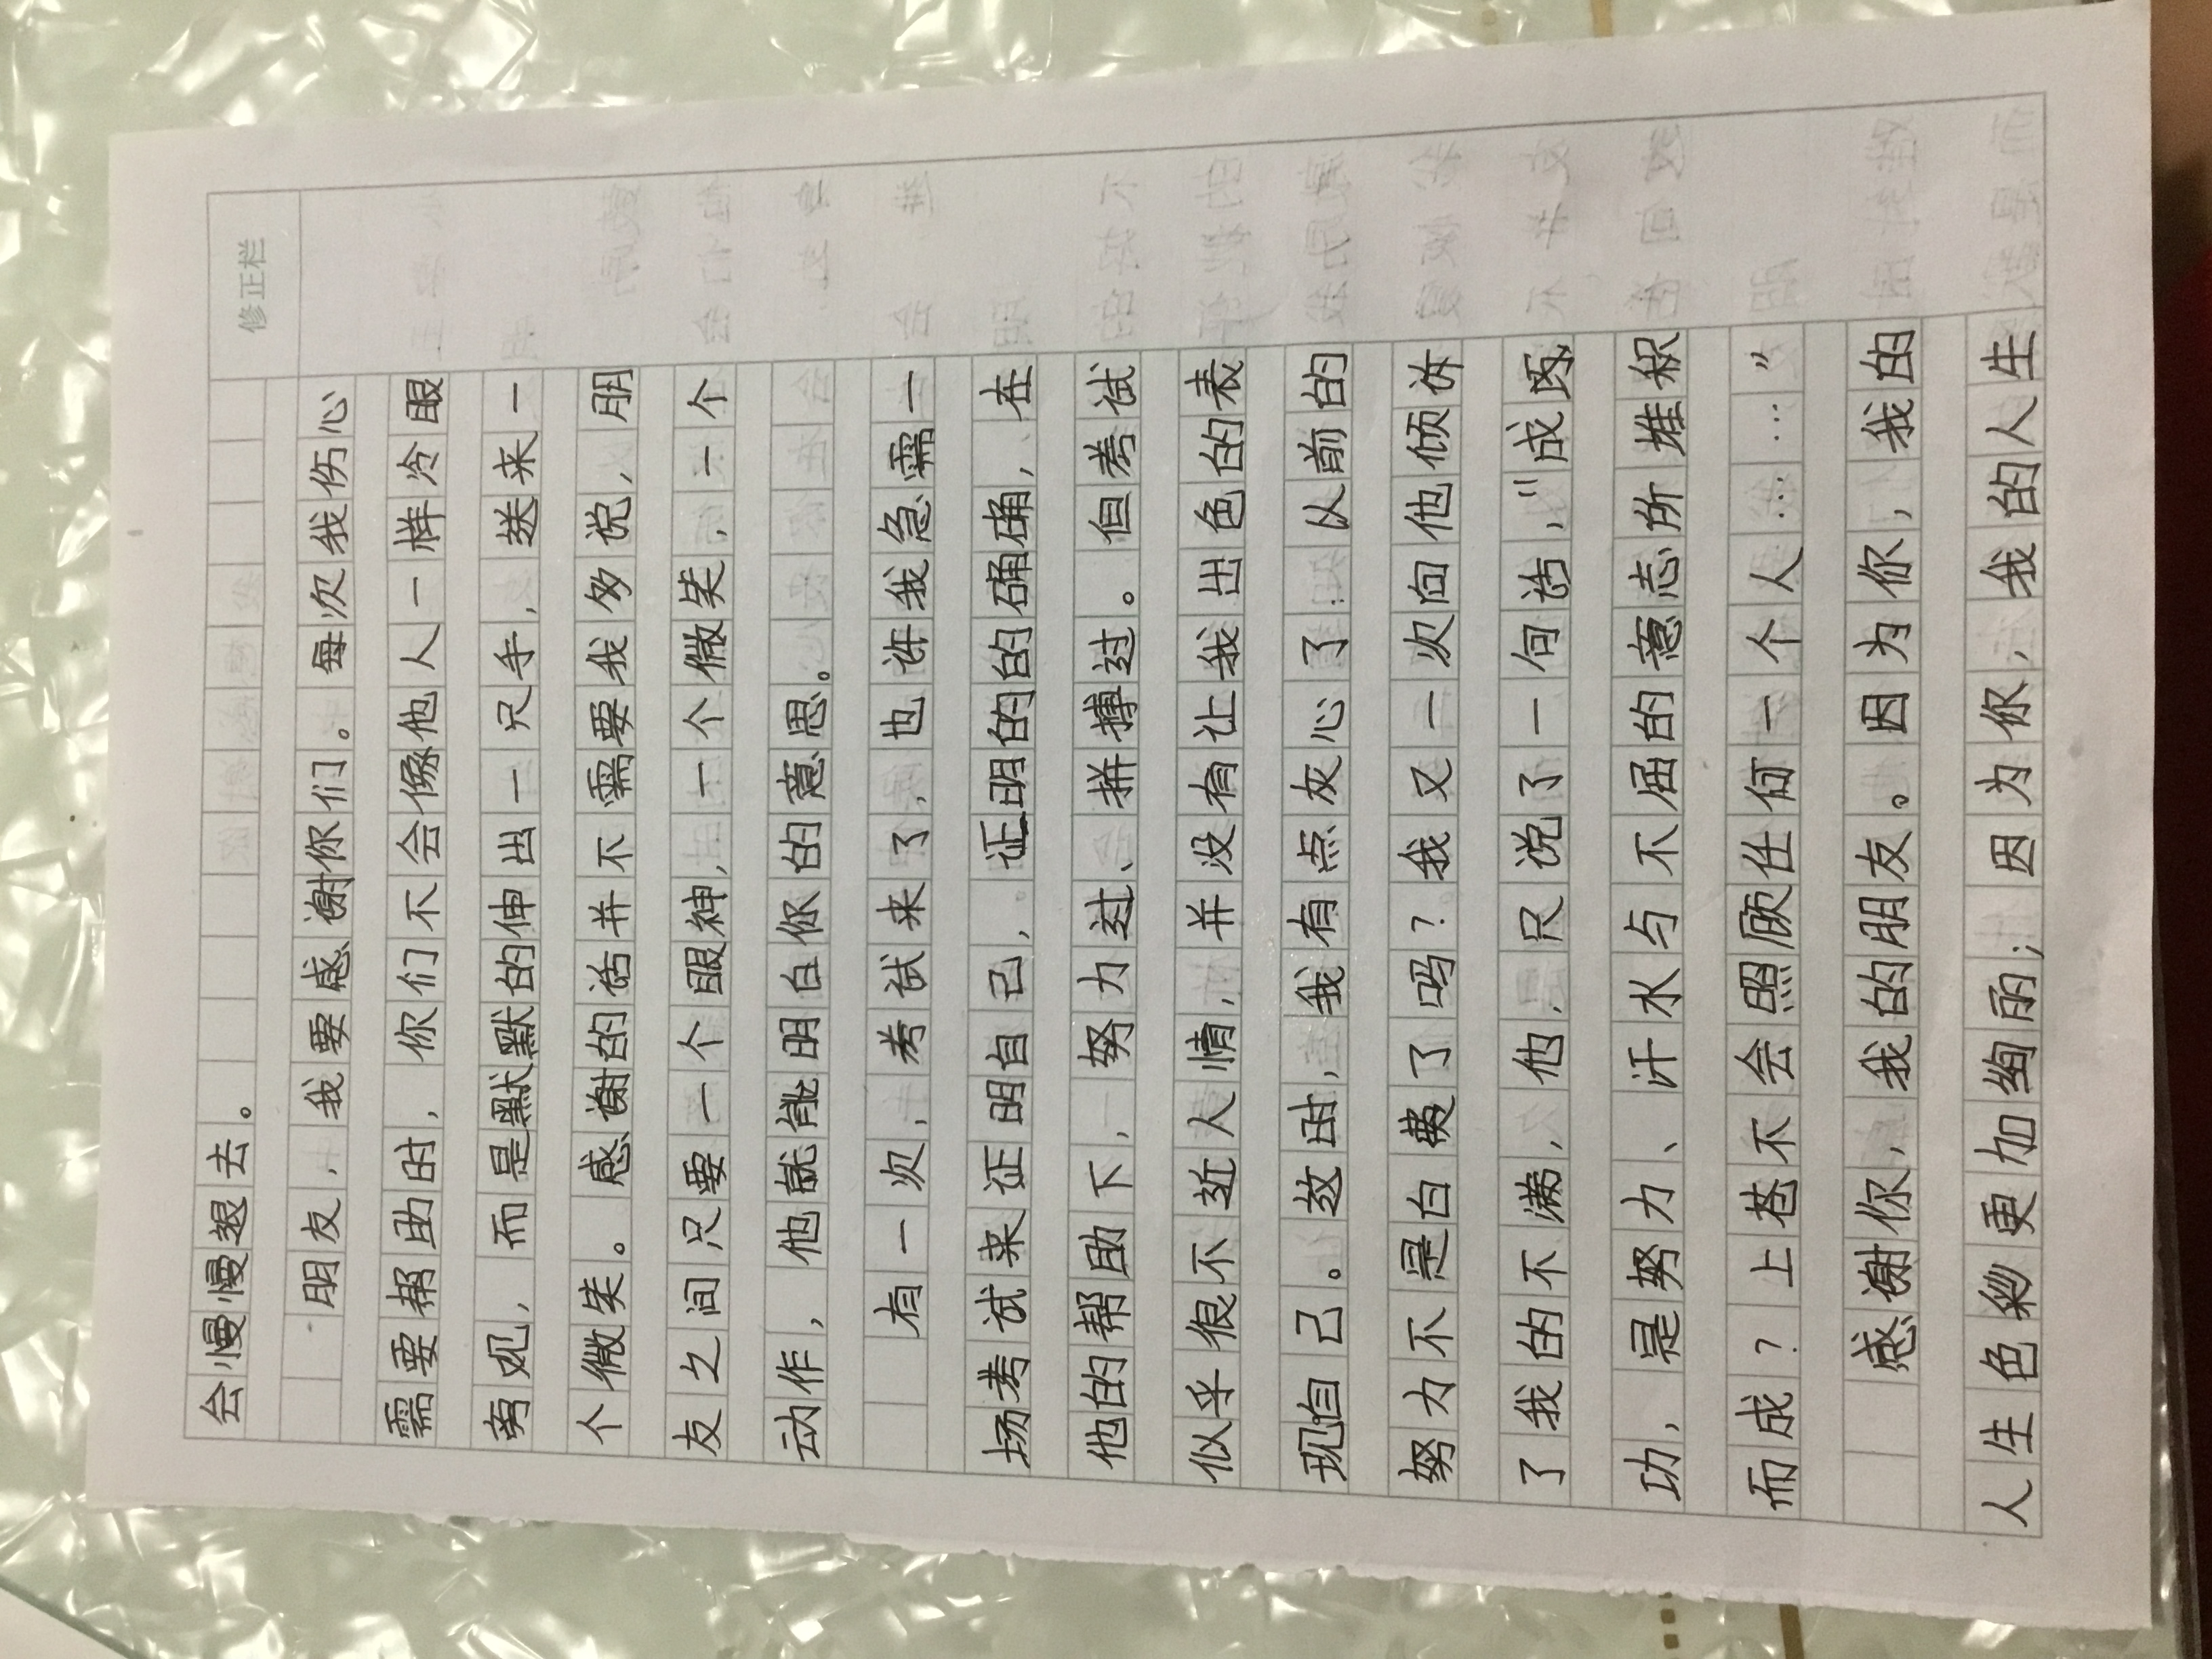 修正栏
会慢慢退去。
朋友，我要感谢你们。每次我伤心
需要帮助时，你们不会像他人一样冷眼
旁观，而是默默的伸出一只手，送来一
个微笑。感谢的话并不需要我多说，朋
友之间只要一个眼神，一个微笑，一个
动作，他就能明白你的意思。
有一次，考试来了，也许我急需一
场考试来证明自己，证明的的确确，在
他的帮助下，努力过、拼搏过。但考试
似乎很不近人情，并没有让我出色的表
现自己。这时，我有点灰心了：以前的
努力不是白费了吗？我又一次向他倾诉
了我的不满，他，只说了一句话，“成
功，是努力、汗水与不屈的意志所堆积
而成？上苍不会照顾任何一个人……”
感谢你，我的朋友。因为你，我的
人生色彩更加绚丽；因为你，我的人生